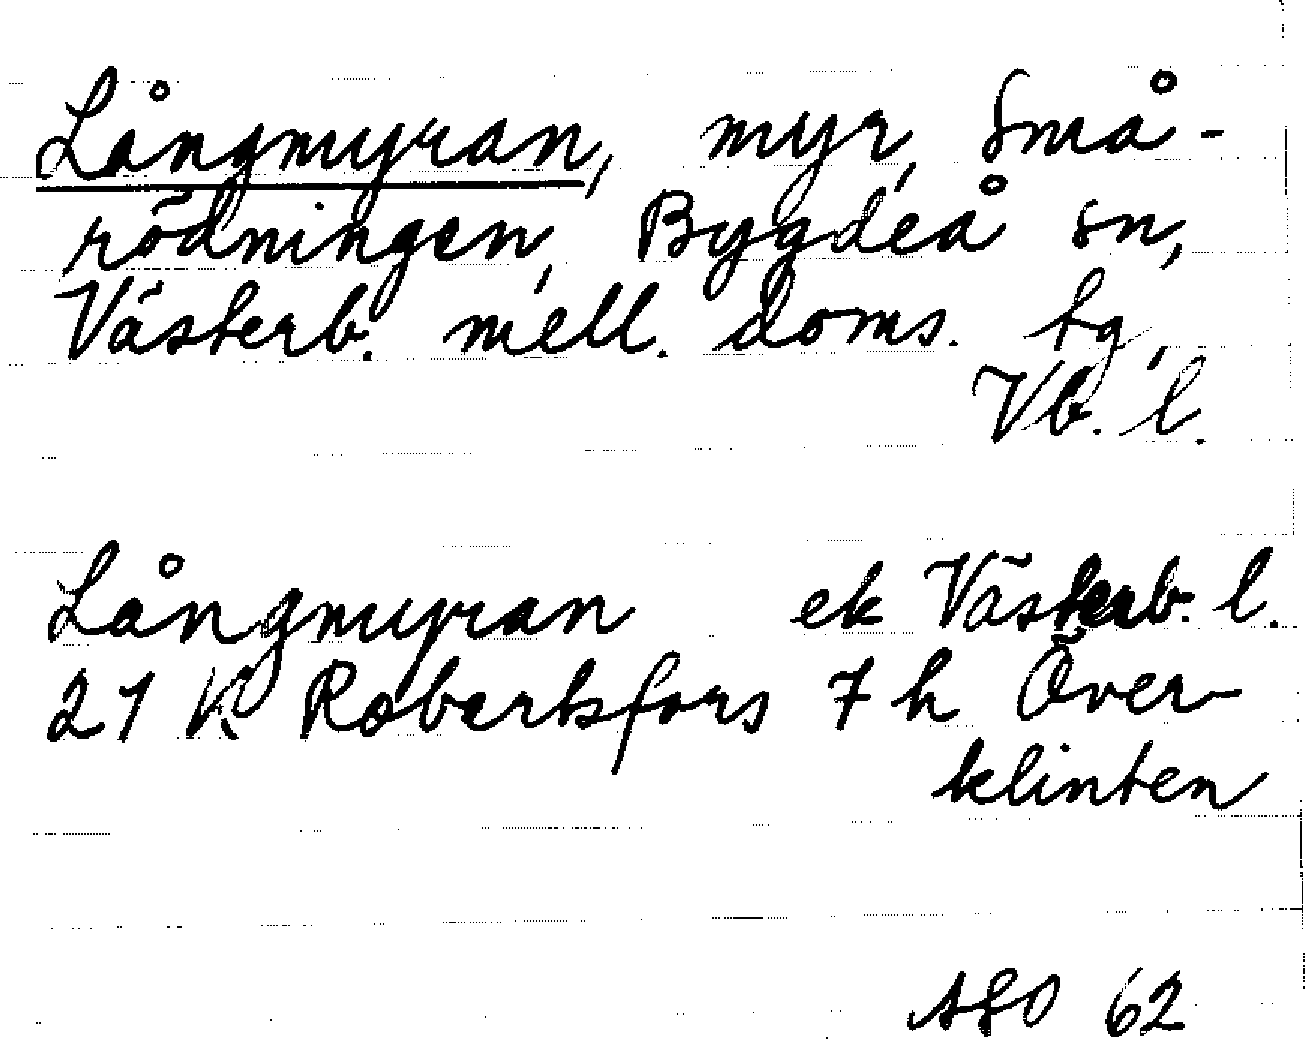 Långmyran, myr, Små-
rödningen, Bygdeå sn,
Västerb. mell. doms. tg,
Vb. l.
Långmyran ek Västerb. l.
21 K Robertsfors 7 h Över-
klinten
62